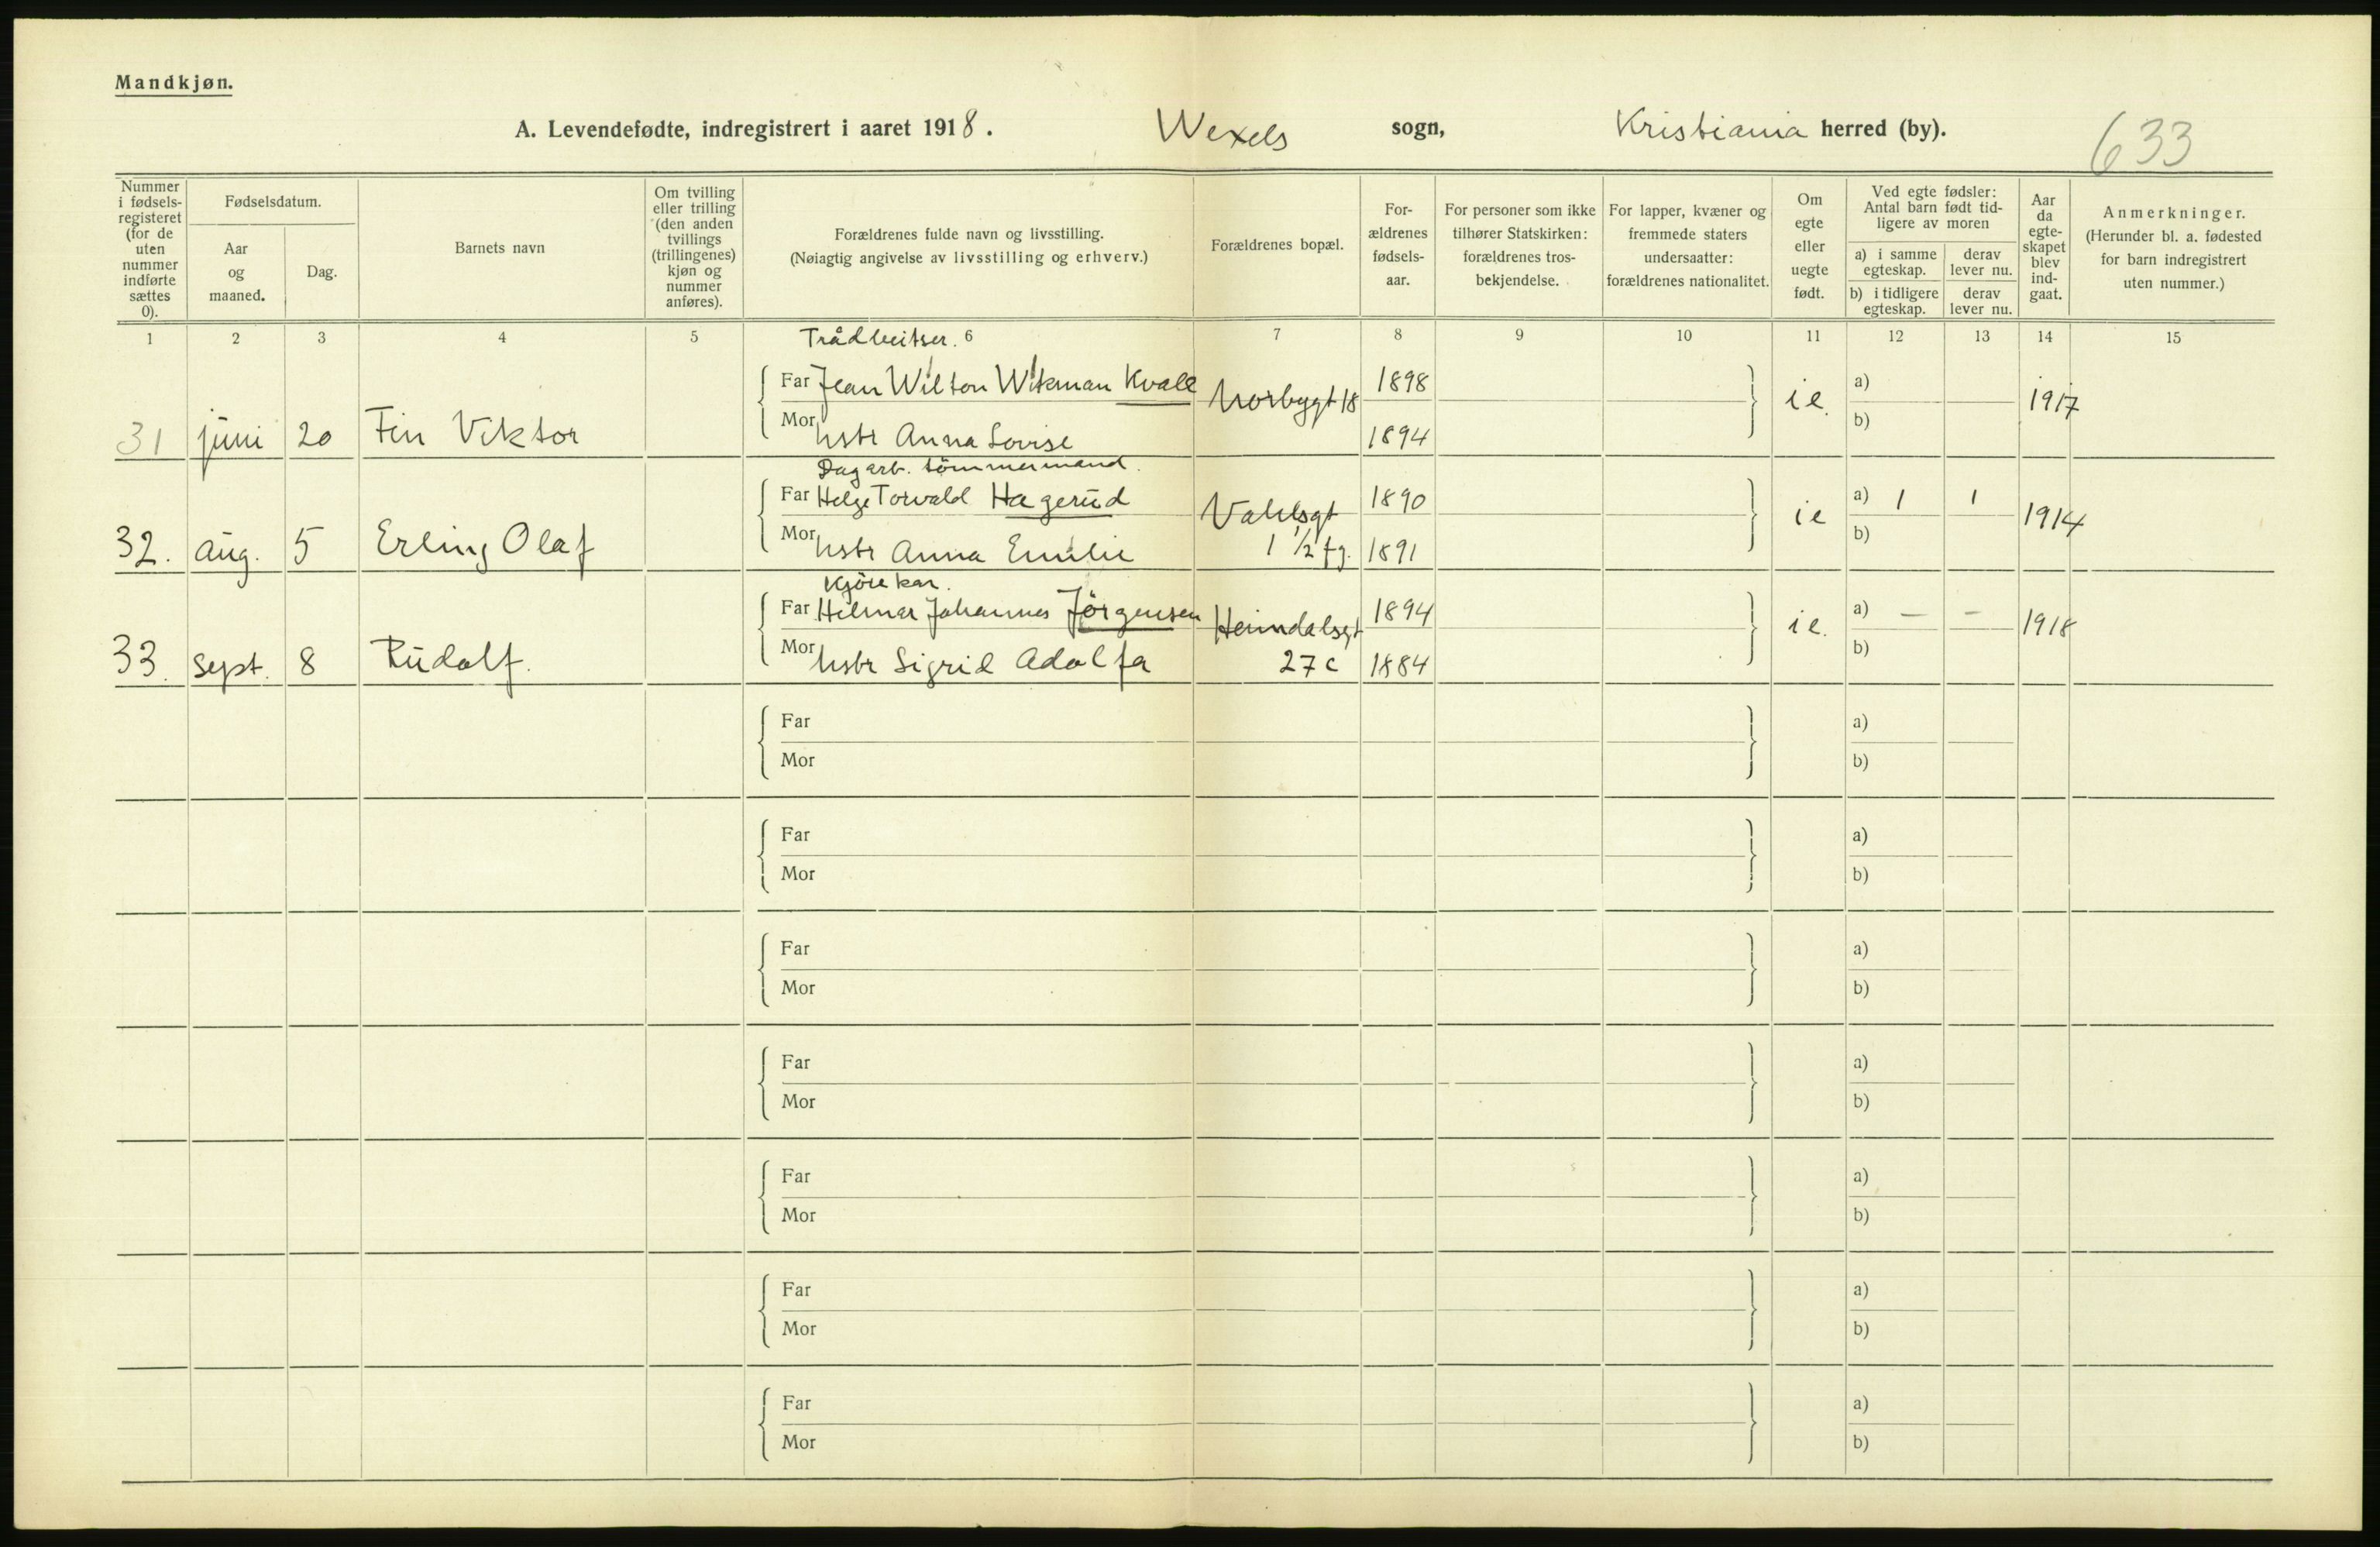 Mandkjøn.
A. Levendefødte, indregistrert i aaret 1918. Wexels sogn, Kristiania herred (by). 633
Nummer i fødsels-registeret (for de uten nummer indførte sættes 0).
Fødselsdatum.
Aar og maaned.
Dag.
Barnets navn
Om tvilling eller trilling (den anden tvillings (trillingenes) kjøn og nummer anføres).
Forældrenes fulde navn og livsstilling.
(Nøiagtig angivelse av livsstilling og erhverv.)
Forældrenes bopæl.
For-ældrenes fødsels-aar.
For personer som ikke tilhører Statskirken: forældrenes tros-bekjendelse.
For lapper, kvæner og fremmede staters undersaatter: forældrenes nationalitet.
Om egte eller uegte født.
Ved egte fødsler: Antal barn født tid-ligere av moren
a) i samme egteskap.
derav lever nu.
b) i tidligere egteskap.
derav lever nu.
Aar da egte-skapet blev ind-gaat.
Anmerkninger.
(Herunder bl. a. fødested for barn indregistrert uten nummer.)
1 2 3 4 5 6 7 8 9 10 11 12 13 14 15
Far Jean Wilton Witeman Kvale 1898 a)
31 juni 20 Fin Viktor Norbygt 18 ie. 1917
Mor hstr Anna Lovise 1894 b)
Dagarb. tömmermand.
Far Helge Torvald Hagerud 1890 a) 1 1
32. aug. 5 Erling Olaf Vahlsgt 1 1/2 ie 1914
Mor hstr Anna Emilie 1891 b)
Kjörekar.
Far Hilmar Johannes Jörgensen 1894 a) — —
33. sept. 8 Rudolf. Heimdalsgt 27 c ie. 1918
Mor hstr Sigrid Adolfa 1884 b)
Far a)
Mor b)
Far a)
Mor b)
Far a)
Mor b)
Far a)
Mor b)
Far a)
Mor b)
Far a)
Mor b)
Far a)
Mor b)